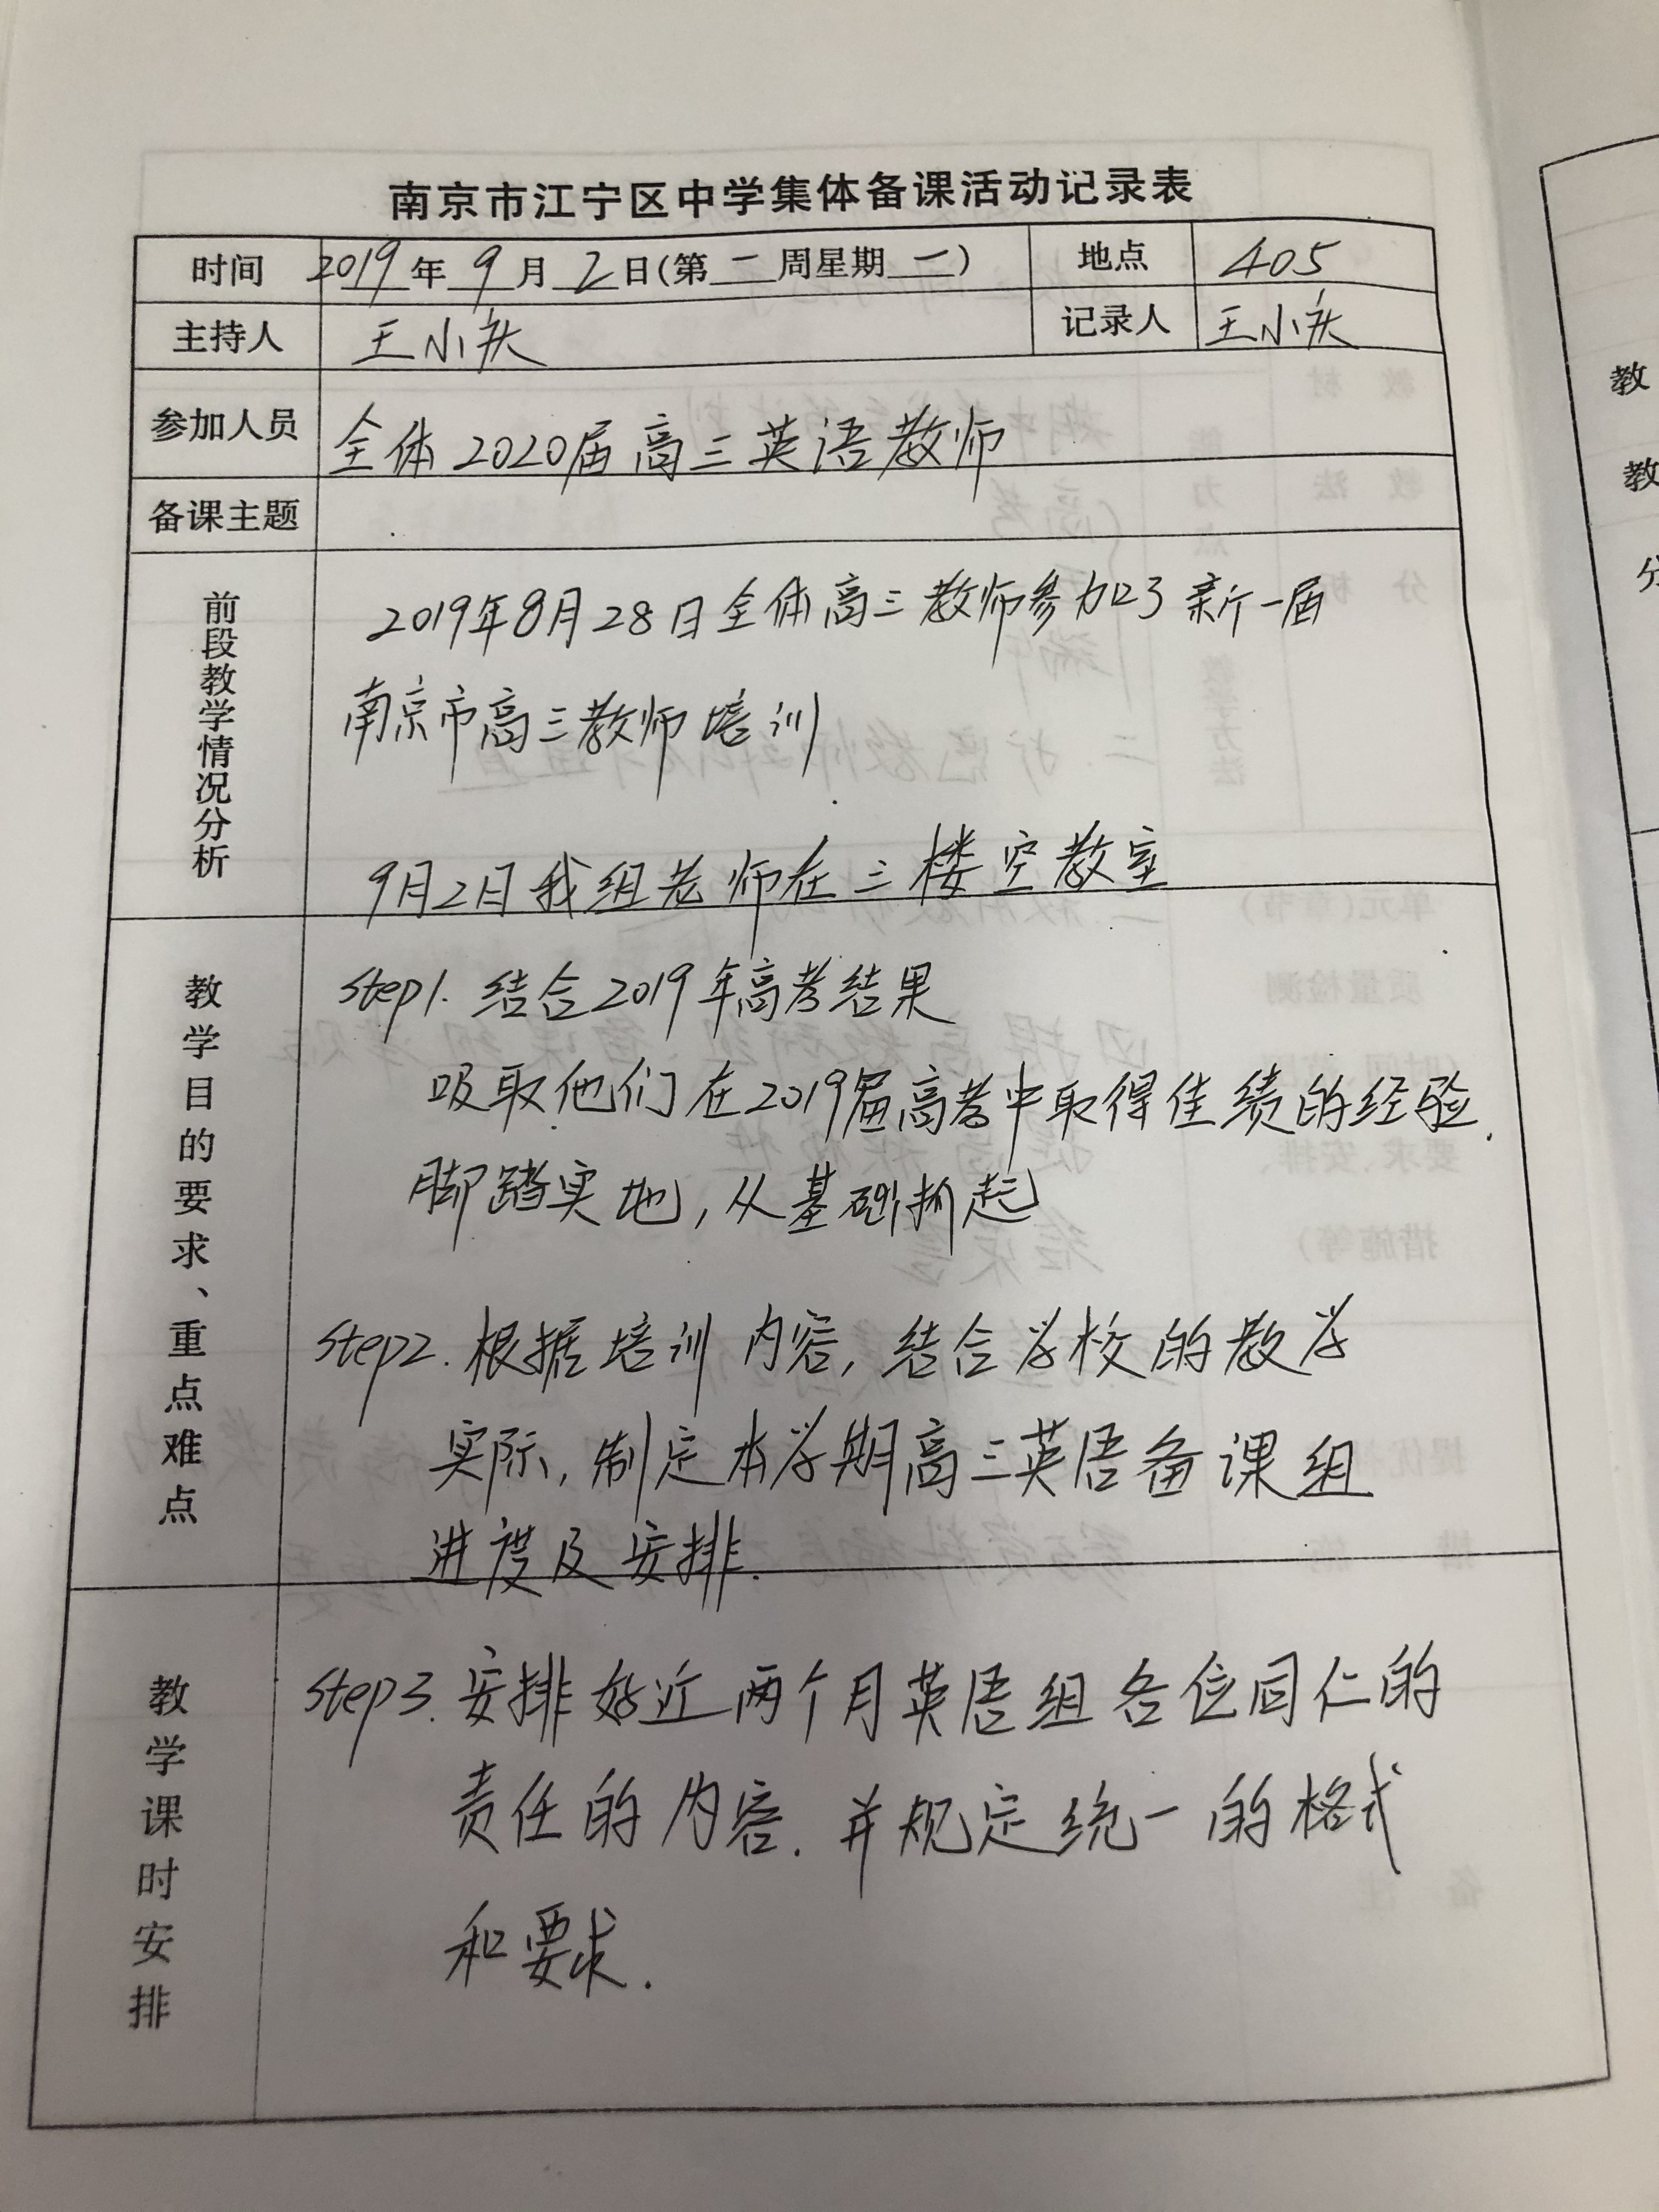 南京市江宁区中学集体备课活动记录表
时间 2019年9月2日(第一周星期一) 地点 405
主持人 王小庆 记录人 王小庆
参加人员 全体2020届高三英语教师
备课主题
前段教学情况分析
2019年8月28日全体高三教师参加了新一届
南京市高三教师培训
9月2日我组老师在三楼空教室
教学目的要求、重点难点
Step1. 结合2019年高考结果
吸取他们在2019届高考中取得佳绩的经验.
脚踏实地,从基础抓起
Step2. 根据培训内容,结合学校的教学
实际,制定本学期高三英语备课组
进度及安排.
教学课时安排
Step3. 安排好近两个月英语组各位同仁的
责任的内容.并规定统一的格式
和要求.
教
教
分